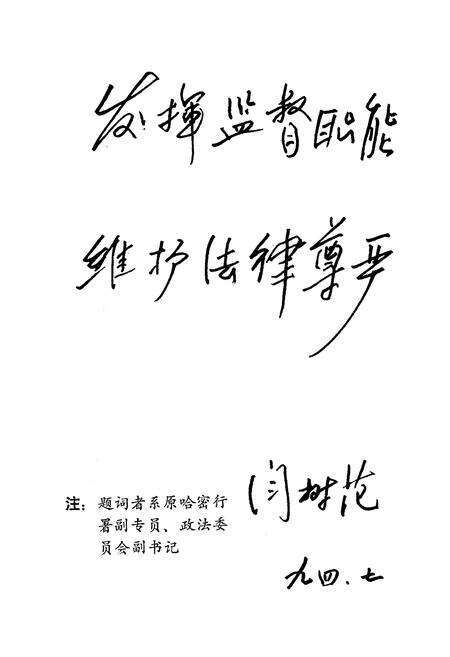 发挥监督职能
维护法律尊严
闫树范
九四.七
注：题词者系原哈密行
署副专员、政法委
员会副书记